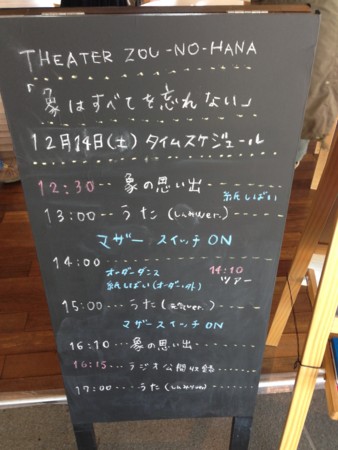 THEATER ZOU-NO-HANA
「象はすべてを忘れない」
12月14日(土) タイムスケジュール
12:30 --- 象の思い出
紙しばい
13:00 --- うた
マザー スイッチ ON
14:00
オーダーダンス 14:10
紙しばい ツアー
15:00 --- うた
マザー スイッチ ON
16:10 --- 象の思い出
16:15 --- ラジオ公開収録
17:00 --- うた